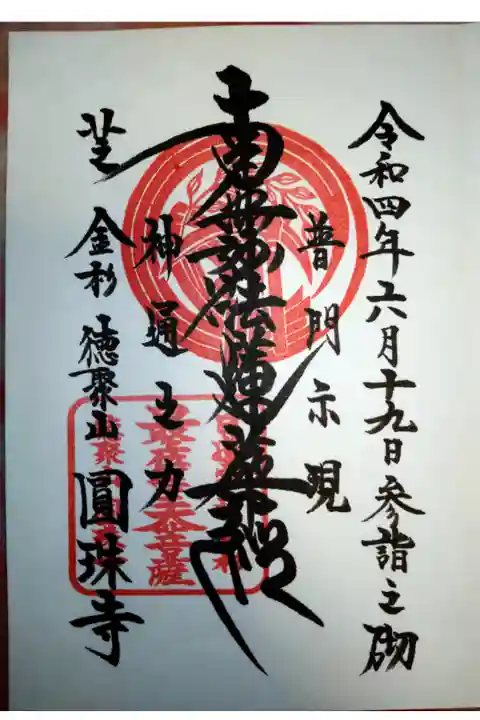 令和四年六月十九日参詣之砌
普門示現
南無妙法蓮華経
神通之力
芝 金杉 徳聚山 圓珠寺